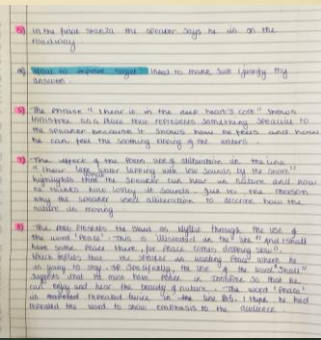 5) In the final stanza the speaker says he is on the
roadway
a) How to improve target: I need to make sure I justify my
answers.
6) The phrase "I hear it in the deep heart's core" shows
Innisfree is a place that represents something special to
the speaker because it shows how he feels and how
he can feel the soothing of the waters.
7) The effect of the Poem use of alliteration in the line
"I hear lake water lapping with low sounds by the shore"
highlights that the speaker can hear in nature and how
he thinks how lovley it sounds. the reason
why the speaker used alliteration to describe how the
nature is moving
8) The Poem Presents the island as idyllic through the use of
the word 'Peace'. This is illustrated in the line "And I shall
have some Peace there, for Peace comes dropping slow".
Which implies that the speaker is wanting Peace where he
is going to stay. Specifically, the use of the word "shall"
suggests that he must have Peace in Innisfree so that he
can enjoy and hear the beauty of nature. The word 'Peace'
is repeated twice in the line I hope he had
repeated the word to show emphasis to the audience.